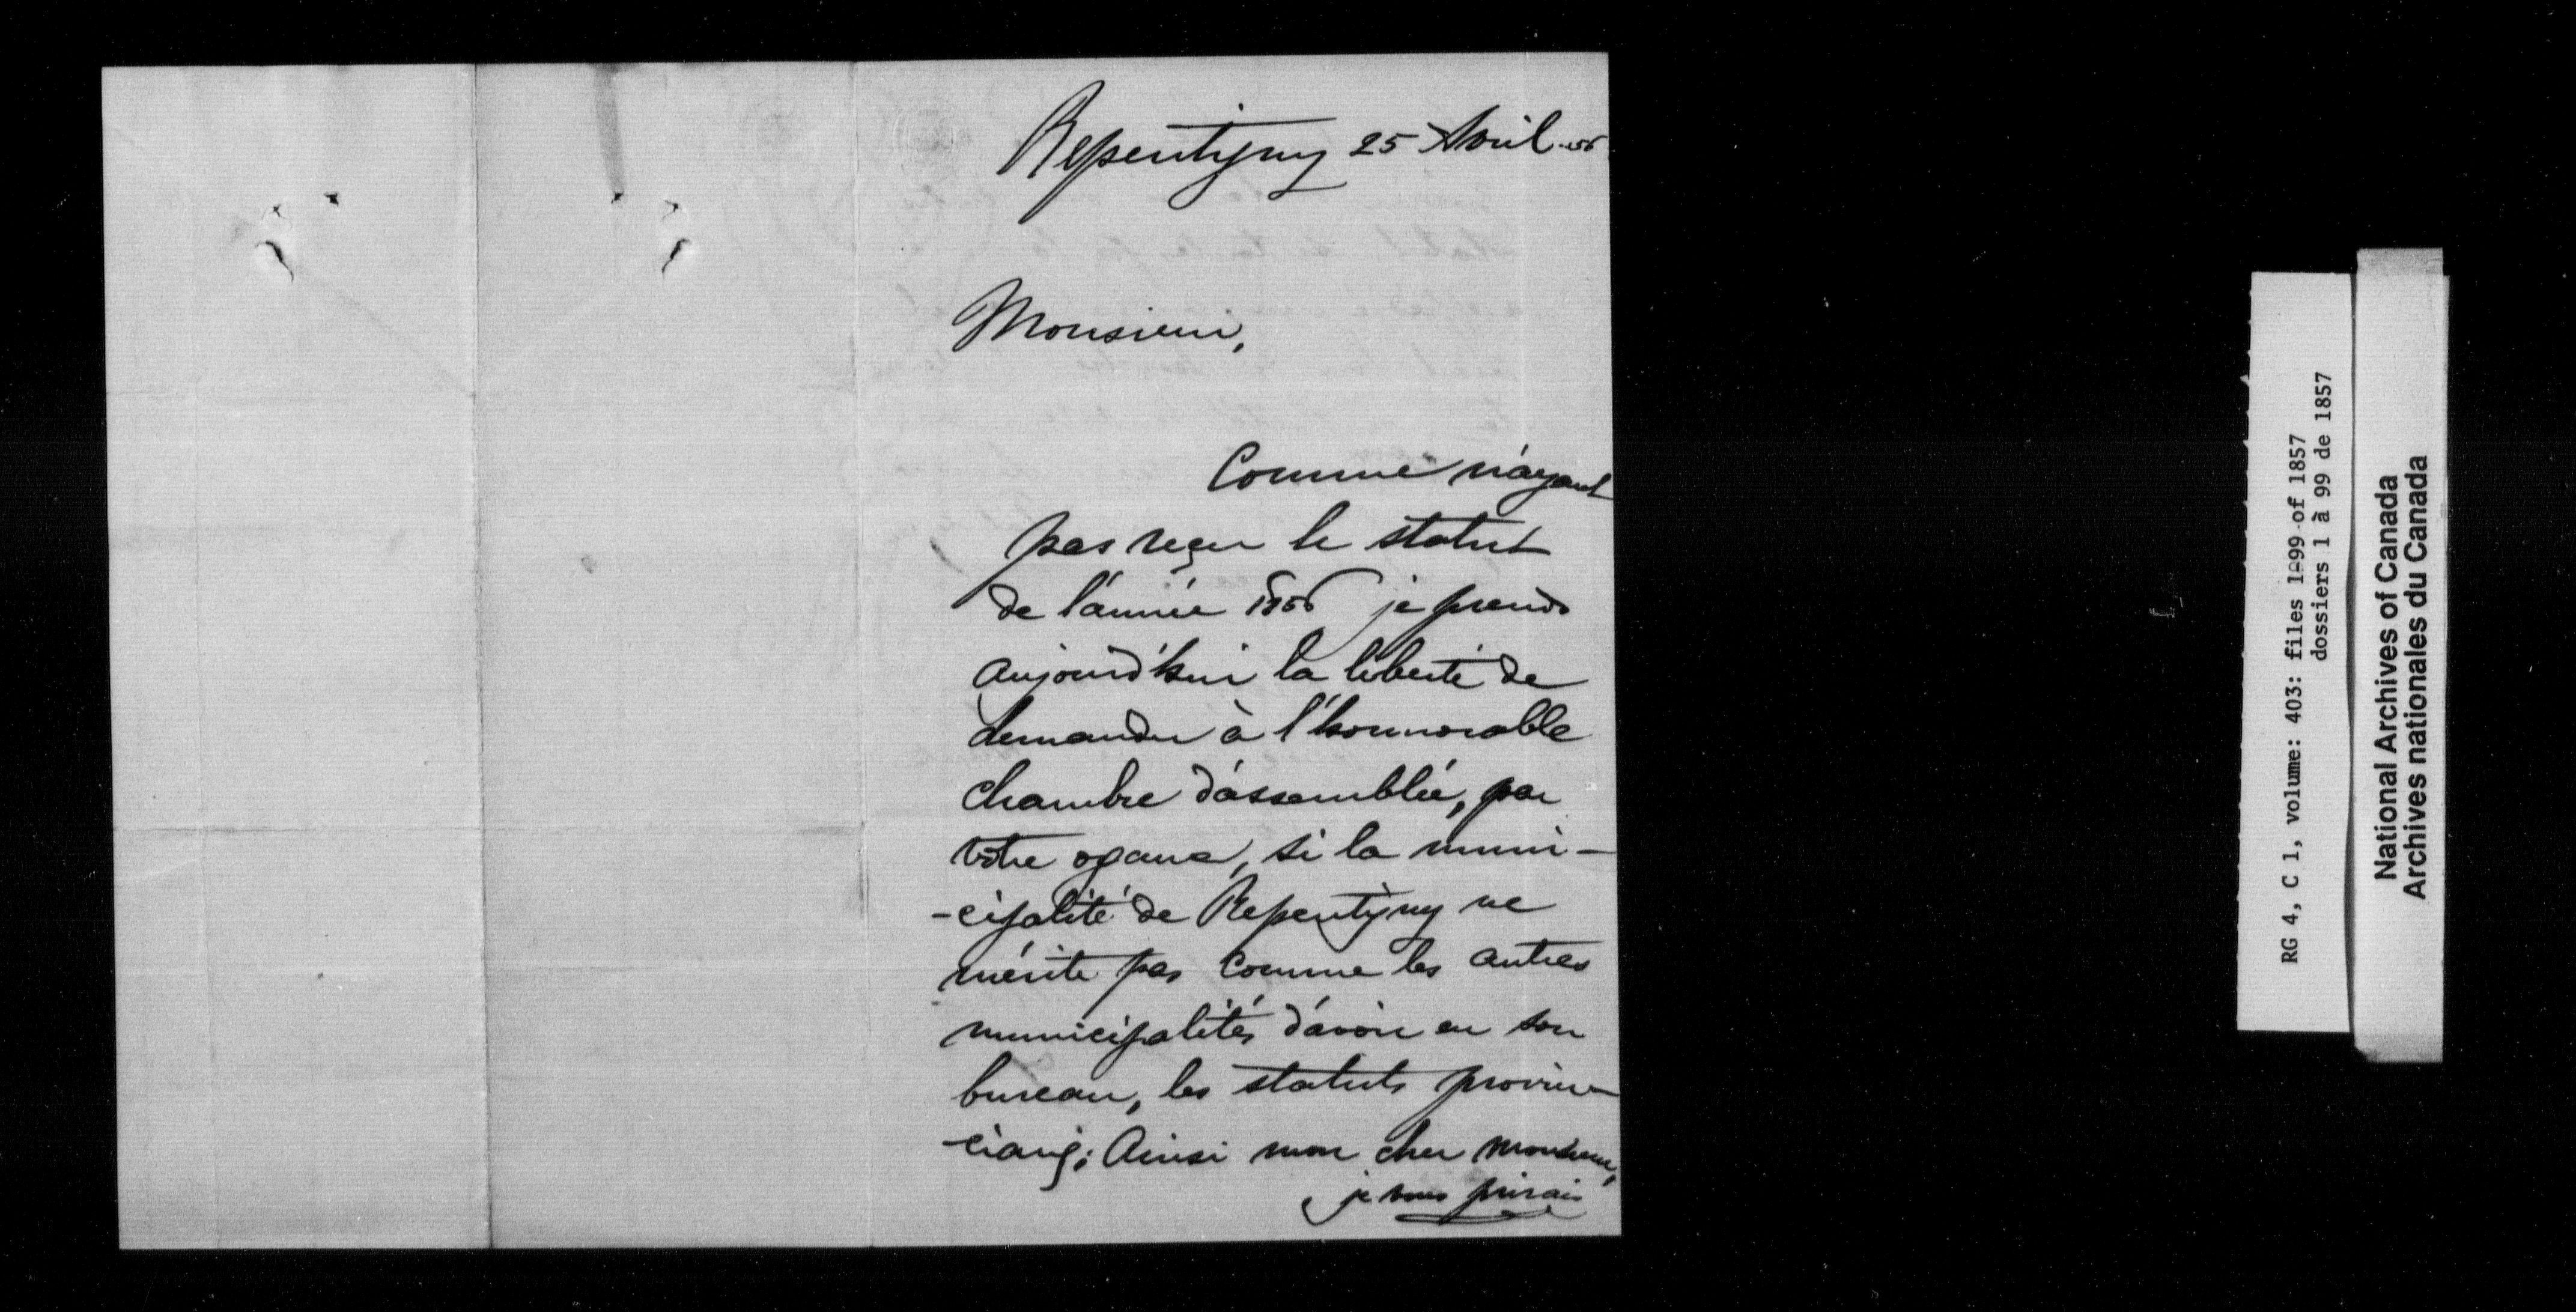 Repentigny 25 Avril 56
Monsieur,
Comme n'ayant
pas reçu le statut
de l'année 1856 je prends
aujourd'hui la liberté de
demander à l'honnorable
chambre d'assemblée, par
votre ogane, si la muni-
-cipalité de Repentigny ne
mérite pas comme les autres
municipalités d'avoir en son
bureau, les statuts provin-
-ciaux; Ainsi mon cher monsieur,
je vous prirais
RG 4, C 1, volume: 403: files 1-99 of 1857
dossiers 1 à 99 de 1857
National Archives of Canada
Archives nationales du Canada